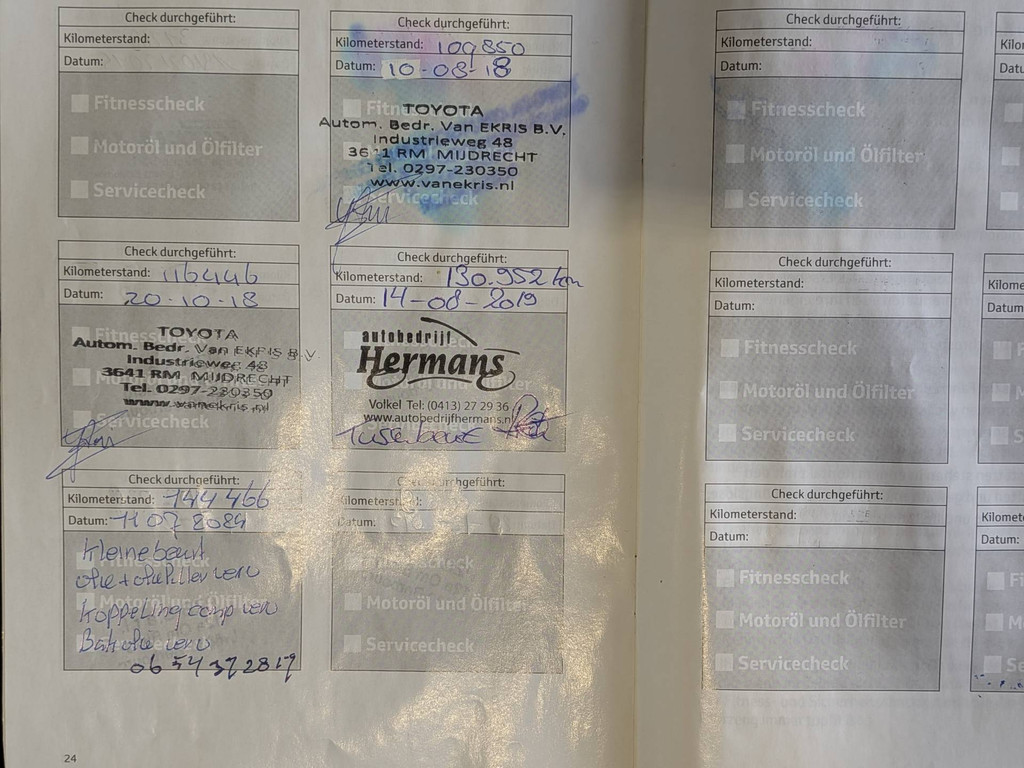 Check durchgeführt:
Kilometerstand:
Datum:
Fitnesscheck
Motoröl und Ölfilter
Servicecheck
Check durchgeführt:
Kilometerstand: 109850
Datum: 10-08-18
TOYOTA
Autom. Bedr. Van EKRIS B.V.
Industrieweg 48
3641 RM MIJDRECHT
Tel. 0297-230350
www.vanekris.nl
Servicecheck
Check durchgeführt:
Kilometerstand: 116446
Datum: 20-10-18
TOYOTA
Autom. Bedr. Van EKRIS B.V.
Industrieweg 48
3641 RM MIJDRECHT
Tel. 0297-230350
www.vanekris.nl
Servicecheck
Check durchgeführt:
Kilometerstand: 130.952 km
Datum: 14-08-2019
autobedrijf
Hermans
Volkel Tel: (0413) 27 29 36
www.autobedrijfhermans.nl
Check durchgeführt:
Kilometerstand: 144 466
Datum: 11 07
Kleine beurt
06 54372817
Check durchgeführt:
Kilometerstand:
Datum:
Fitnesscheck
Motoröl und Ölfilter
Servicecheck
24
Check durchgeführt:
Kilometerstand:
Datum:
Fitnesscheck
Motoröl und Ölfilter
Servicecheck
Check durchgeführt:
Kilometerstand:
Datum:
Fitnesscheck
Motoröl und Ölfilter
Servicecheck
Check durchgeführt:
Kilometerstand:
Datum:
Fitnesscheck
Motoröl und Ölfilter
Servicecheck